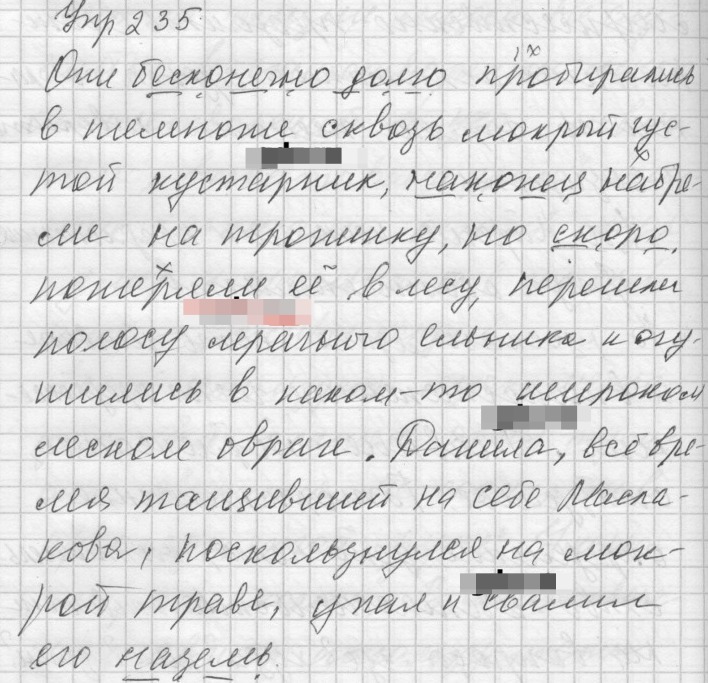 Упр 235.
Они бесконечно долго пробирались
в темноте сквозь мокрый гус-
той кустарник, наконец набре-
ли на тропинку, но скоро
потеряли её в лесу, перешли
полосу мрачного ельника и очу-
тились в каком-то широком
лесном овраге. Данила, всё вре-
мя тащивший на себе Масла-
кова, поскользнулся на мок-
рой траве, упал и свалил
его наземь.